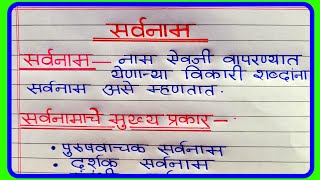 सर्वनाम
सर्वनाम — नाम ऐवजी वापरण्यात
येणाऱ्या विकारी शब्दांना
सर्वनाम असे म्हणतात.
सर्वनामाचे मुख्य प्रकार —
• पुरुषवाचक सर्वनाम
• दर्शक सर्वनाम